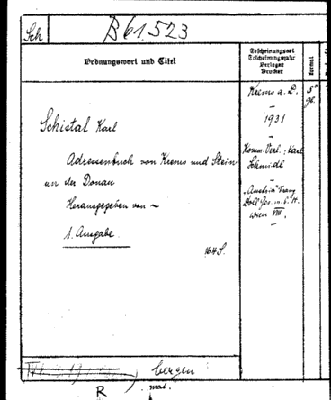 Sch
B 61.523
Ordnungswort und Titel
Erscheinungsort
Erscheinungsjahr
Verleger
Drucker
Format
Krems a. D.
–
1931
–
Komm. Verl.: Karl
Schmidt
–
8°
Schietal Karl
Adressenbuch von Krems und Stein
an der Donau
Herausgegeben von –
1. Ausgabe.
164 S.
"Austria" Franz
Wien VIII.
–
bergen
R